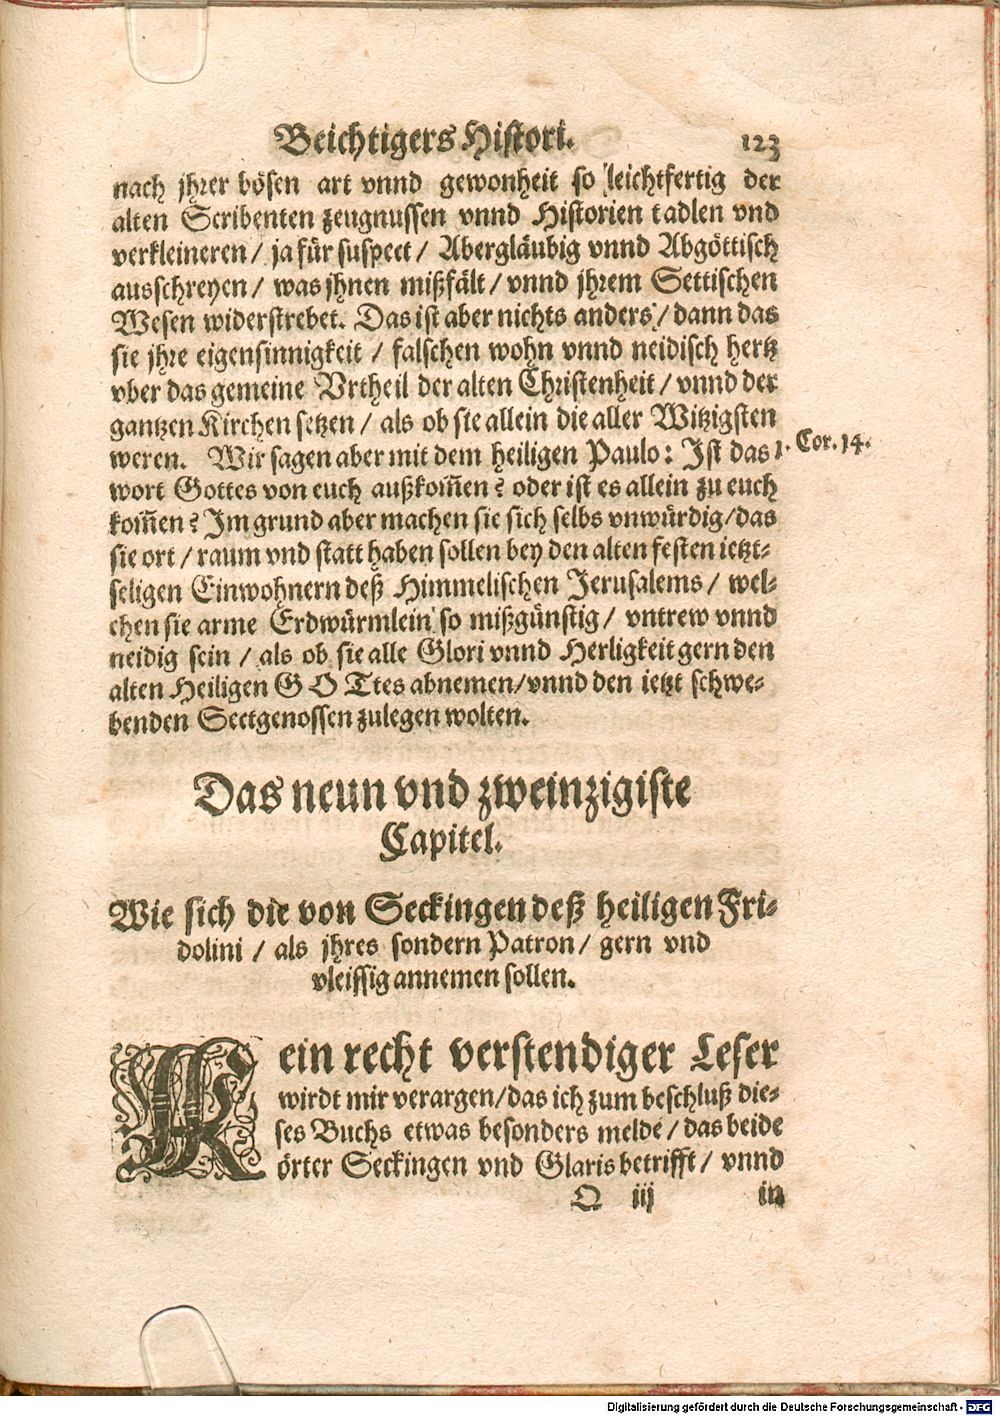 Beichtigers Histori. 123
nach jhrer bösen art vnnd gewonheit so leichtfertig der
alten Scribenten zeugnussen vnnd Historien tadlen vnd
verkleineren / ja für suspect / Abergläubig vnnd Abgöttisch
ausschreyen / was jhnen mißfält / vnnd jhrem Settischen
Wesen widerstrebet. Das ist aber nichts anders / dann das
sie jhre eigensinnigkeit / falschen wohn vnnd neidisch hertz
vber das gemeine Vrtheil der alten Christenheit / vnnd der
gantzen Kirchen setzen / als ob sie allein die aller Witzigsten
weren. Wir sagen aber mit dem heiligen Paulo: Ist das
1. Cor. 14.
wort Gottes von euch außkom̃en? oder ist es allein zu euch
kom̃en? Im grund aber machen sie sich selbs vnwürdig / das
sie ort / raum vnd statt haben sollen bey den alten festen ietzt-
seligen Einwohnern deß Himmelischen Jerusalems / wel-
chen sie arme Erdwürmlein so mißgünstig / vntrew vnnd
neidig sein / als ob sie alle Glori vnnd Herligkeit gern den
alten Heiligen GOTtes abnemen / vnnd den ietzt schwe-
benden Sectgenossen zulegen wolten.
Das neun vnd zweinzigiste
Capitel.
Wie sich die von Seckingen deß heiligen Fri-
dolini / als jhres sondern Patron / gern vnd
vleissig annemen sollen.
Kein recht verstendiger Leser
wirdt mir verargen / das ich zum beschluß die-
ses Buchs etwas besonders melde / das beide
örter Seckingen vnd Glaris betrifft / vnnd
Q iij in
Digitalisierung gefördert durch die Deutsche Forschungsgemeinschaft - DFG